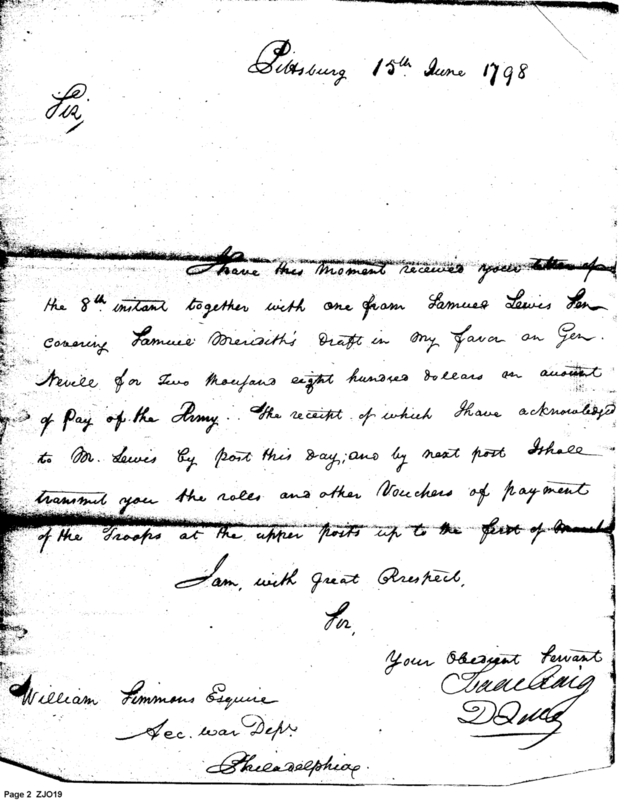 Pittsburg 15th June 1798
Sir,
I have this moment received your letter of
the 8th instant together with one from Samuel Lewis Sen
covering Samuel Meridith's draft in my favor on Gen.
Nevill for Two thousand eight hundred dollars on account
of Pay of the Army.. the receipt of which I have acknowledged
to Mr. Lewis by post this Day; and by next post I shall
transmit you the roles and other Vouchers of payment
of the Troops at the upper posts up to the first of March
I am, with great Respect,
Sir,
Your Obedient Servant
Isaac Craig
DQMG
William Simmons Esquire
Acc. war Depr
Philadelphia.
Page 2 ZJO19